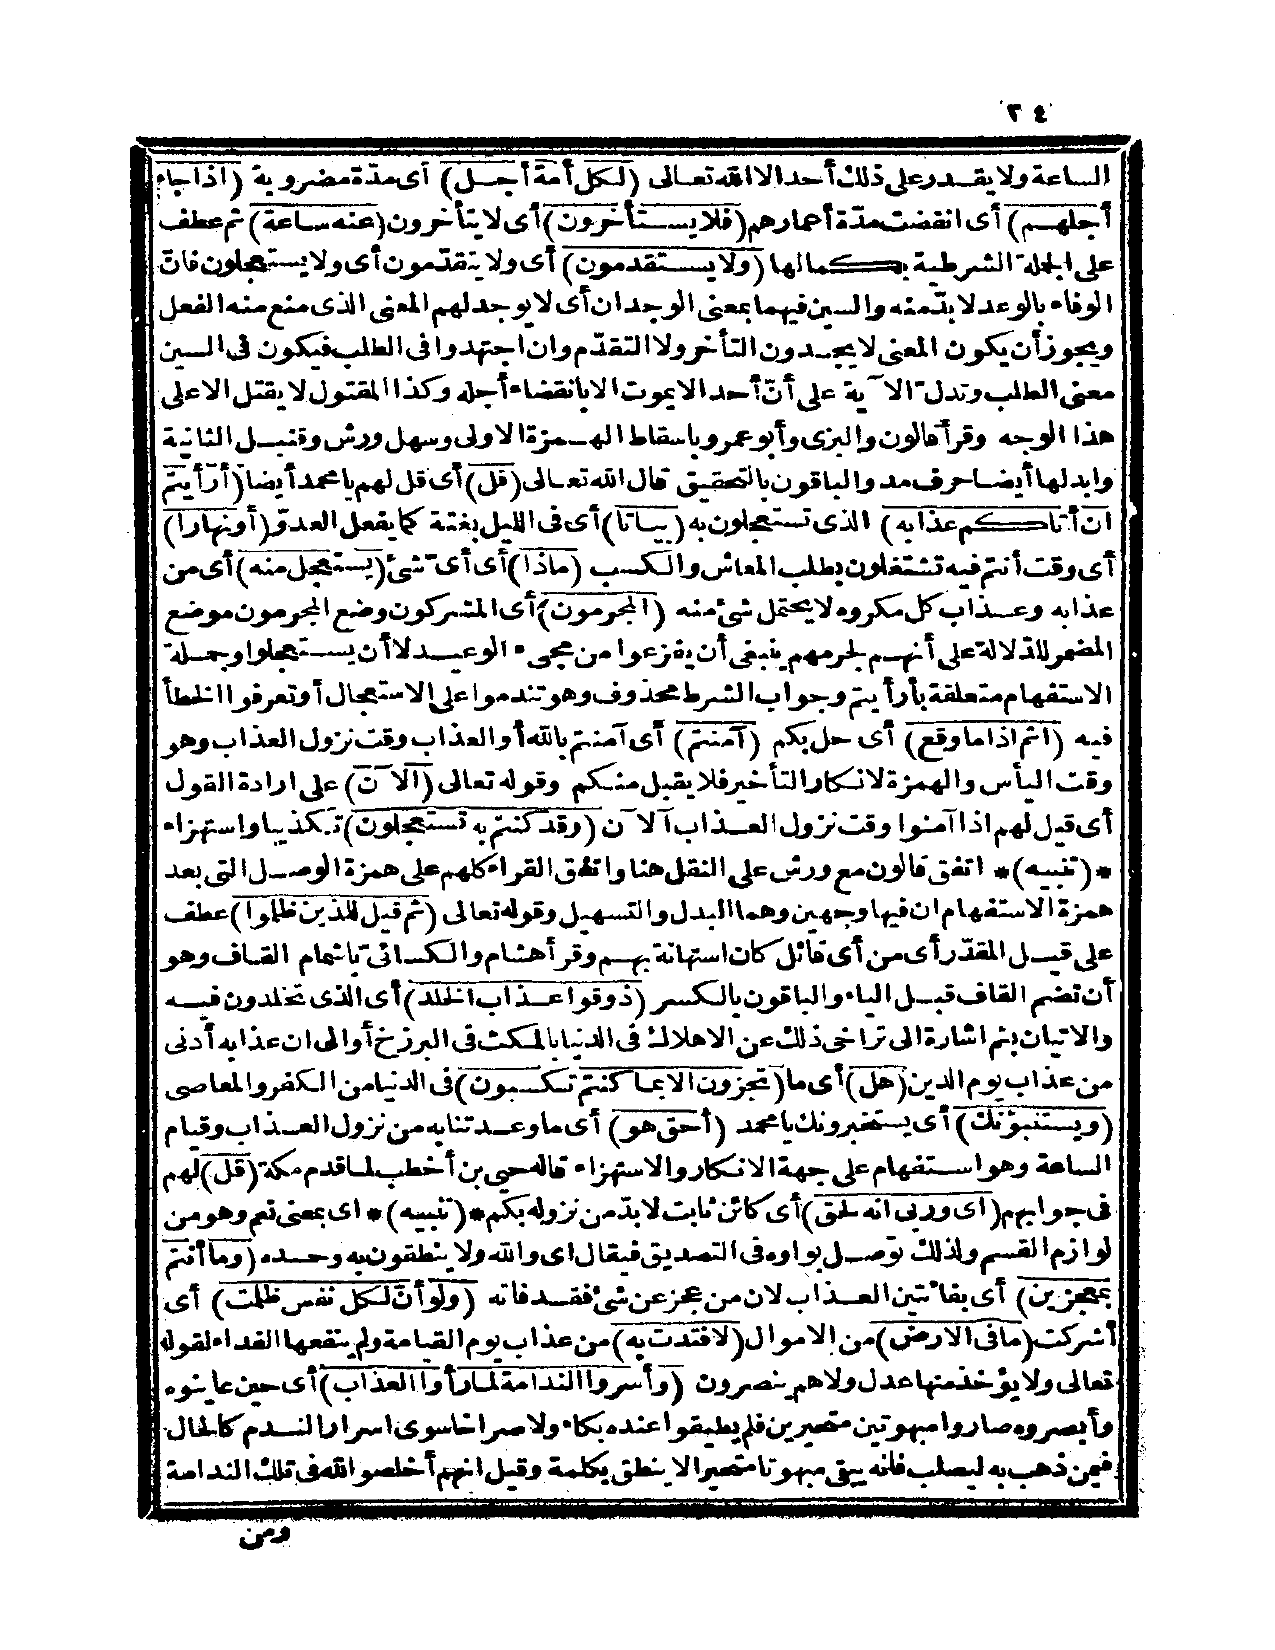 ٢٤
الساعة ولا يقدر على ذلك أحد الا الله تعالى (لكل أمة أجل) أى مدّة مضروبة (اذا جاء
أجلهم) أى انقضت مدّة أعمارهم (فلا يستأخرون) أى لا يتأخرون (عنه ساعة) ثم عطف
على الجملة الشرطية بكمالها (ولا يستقدمون) أى ولا يتقدّمون أى ولا يستعجلون فانّ
الوفاء بالوعد لا بدّ منه والسين فيهما بمعنى الوجدان أى لا يوجد لهم المعنى الذى منع منه الفعل
ويجوز أن يكون المعنى لا يجدون التأخر ولا التقدّم وان اجتهدوا فى الطلب فيكون فى السين
معنى الطلب وتدل الآية على أنّ أحدا لا يموت الا بانقضاء أجله وكذا المقتول لا يقتل الا على
هذا الوجه وقرأ قالون والبزى وأبو عمرو باسقاط الهمزة الاولى وسهل ورش وقنبل الثانية
وابدلها أيضا حرف مد والباقون بالتحقيق قال الله تعالى (قل) أى قل لهم يا محمد أيضا (أرأيتم
ان أتاكم عذابه) الذى تستعجلون به (بياتا) أى فى الليل بغتة كما يفعل العدوّ (أو نهارا)
أى وقت أنتم فيه تشتغلون بطلب المعاش والكسب (ماذا) أى أى شئ (يستعجل منه) أى من
عذابه وعذاب كل مكروه لا يحتمل شئ منه (المجرمون) أى المشركون وضع المجرمون موضع
المضمر للدلالة على أنهم لجرمهم ينبغى أن يفزعوا من مجىء الوعيد لا أن يستعجلوا وجملة
الاستفهام متعلقة بأرأيتم وجواب الشرط محذوف وهو تندموا على الاستعجال أو تعرفوا الخطأ
فيه (اثم اذا ما وقع) أى حل بكم (آمنتم) أى آمنتم بالله أو العذاب وقت نزول العذاب وهو
وقت اليأس والهمزة لانكار التأخير فلا يقبل منكم وقوله تعالى (آلآن) على ارادة القول
أى قيل لهم اذا آمنوا وقت نزول العذاب آلآن (وقد كنتم به تستعجلون) تكذيبا واستهزاء
*(تنبيه)* اتفق قالون مع ورش على النقل هنا واتفق القراء كلهم على همزة الوصل التى بعد
همزة الاستفهام ان فيها وجهين وهما البدل والتسهيل وقوله تعالى (ثم قيل للذين ظلموا) عطف
على قيل المقدّر أى من أى قائل كان استهانة بهم وقرأ هشام والكسائى باشمام القاف وهو
أن تضم القاف قبل الياء والباقون بالكسر (ذوقوا عذاب الخلد) أى الذى تخلدون فيه
والاتيان بثم اشارة الى تراخى ذلك عن الاهلاك فى الدنيا بالمكث فى البرزخ أو الى ان عذابه أدنى
من عذاب يوم الدين (هل) أى ما (تجزون الا بما كنتم تكسبون) فى الدنيا من الكفر والمعاصى
(ويستنبؤنك) أى يستخبرونك يا محمد (أحق هو) أى ما وعدتنا به من نزول العذاب وقيام
الساعة وهو استفهام على جهة الانكار والاستهزاء قاله حيى بن أخطب لما قدم مكة (قل) لهم
فى جوابهم (اى وربى انه لحق) أى كائن ثابت لا بدّ من نزوله بكم *(تنبيه)* اى بمعنى نعم وهو من
لوازم القسم ولذلك توصل بواوه فى التصديق فيقال اى والله ولا ينطقون به وحده (وما أنتم
بمعجزين) أى بفائتين العذاب لان من عجز عن شئ فقد فاته (ولو أنّ لكل نفس ظلمت) أى
أشركت (ما فى الارض) من الاموال (لافتدت به) من عذاب يوم القيامة ولم ينفعها الفداء لقوله
تعالى ولا يؤخذ منها عدل ولا هم ينصرون (وأسروا الندامة لما رأوا العذاب) أى حين عاينوه
وأبصروه صاروا مبهوتين متحيرين فلم يطيقوا عنده بكاء ولا صراخا سوى اسرار الندم كالحال
فيمن ذهب به ليصلب فانه يبقى مبهوتا متحيرا لا ينطق بكلمة وقيل انهم أخلصوا لله فى تلك الندامة
ومن